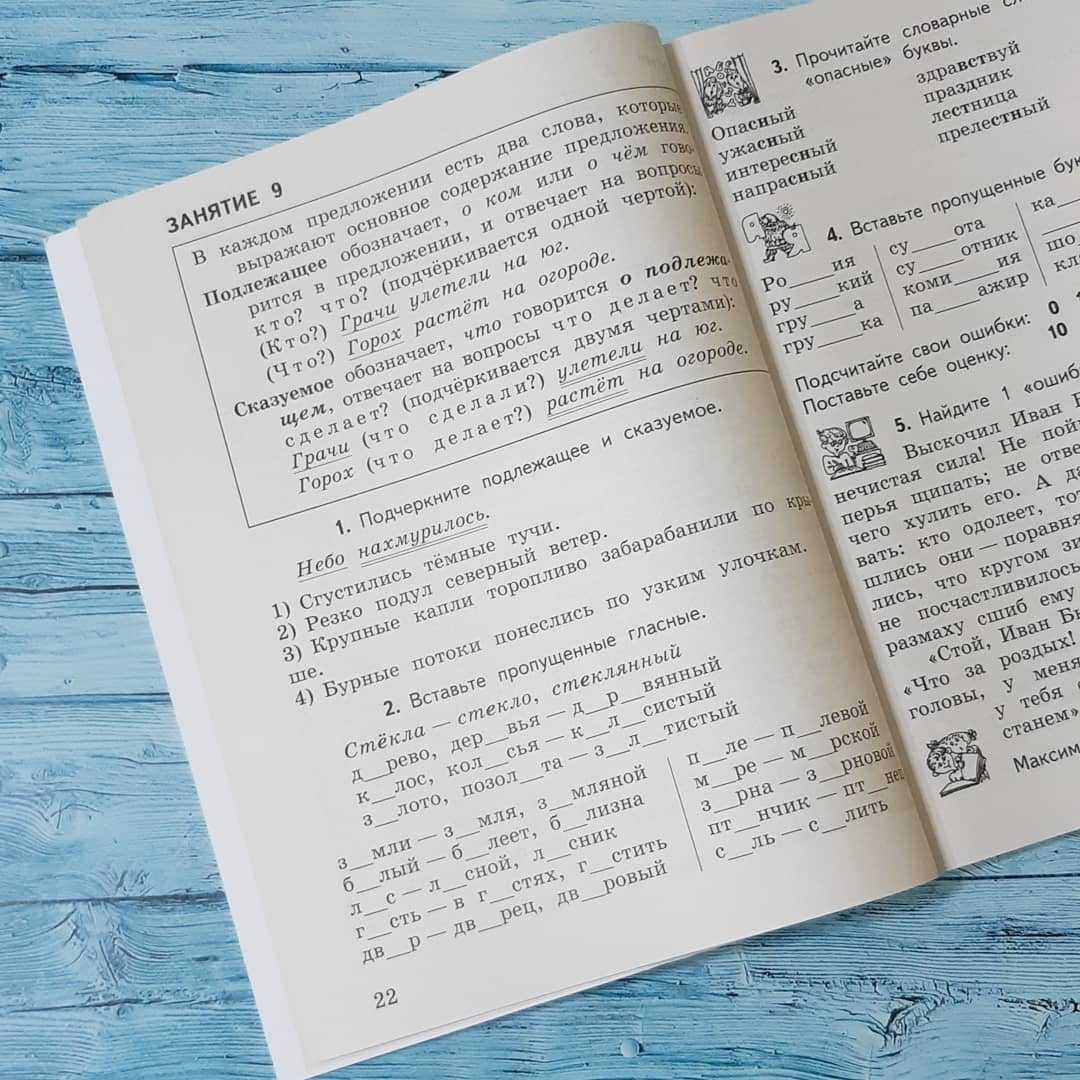 ЗАНЯТИЕ 9
В каждом предложении есть два слова, которые
выражают основное содержание предложения.
Подлежащее обозначает, о ком или о чём гово-
рится в предложении, и отвечает на вопросы
кто? что? (подчёркивается одной чертой):
(Кто?) Грачи улетели на юг.
(Что?) Горох растёт на огороде.
Сказуемое обозначает, что говорится о подлежа-
щем, отвечает на вопросы что делает? что
сделает? (подчёркивается двумя чертами):
Грачи (что сделали?) улетели на юг.
Горох (что делает?) растёт на огороде.
1. Подчеркните подлежащее и сказуемое.
Небо нахмурилось.
1) Сгустились тёмные тучи.
2) Резко подул северный ветер.
3) Крупные капли торопливо забарабанили по кры-
ше.
4) Бурные потоки понеслись по узким улочкам.
2. Вставьте пропущенные гласные.
Стёкла — стекло, стеклянный
д__рево, дер__вья — д__р__вянный
к__лос, кол__сья — к__л__систый
з__лото, позол__та — з__л__тистый
з__мли — з__мля, з__мляной
б__лый — б__леет, б__лизна
л__с — л__сной, л__сник
г__сть — в г__стях, г__стить
дв__р — дв__рец, дв__ровый
п__ле — п__левой
м__ре — м__рской
з__рна — з__рновой
пт__нчик — пт__нец
с__ль — с__лить
22
3. Прочитайте словарные
«опасные» буквы.
Опасный
ужасный
интересный
напрасный
здравствуй
праздник
лестница
прелестный
4. Вставьте пропущенные
Ро____ия
ру____кий
гру____а
гру____ка
су____ота
су____отник
коми____ия
па____ажир
ка__
шо
кл
Подсчитайте свои ошибки: 0
Поставьте себе оценку: 10
5. Найдите 1
Выскочил Иван
нечистая сила! Не
перья щипать; не
чего хулить его. А
вать: кто одолеет,
шлись они —
лись, что кругом
не посчастливилось
размаху сшиб ему
«Стой, Иван
«Что за роздых!
головы, у меня
у тебя
станем»